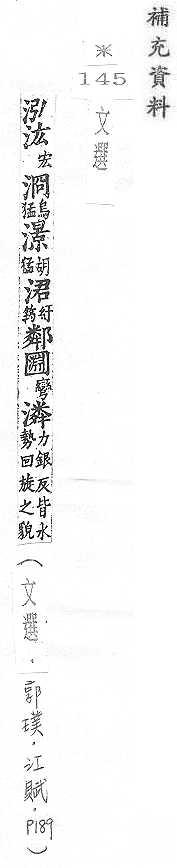 補充資料
※
145
文選
泓汯宏浻烏猛澋胡猛涒紆筠鄰㘤巒潾力銀反皆水勢回旋之貌(文選,郭璞,江賦,P189)